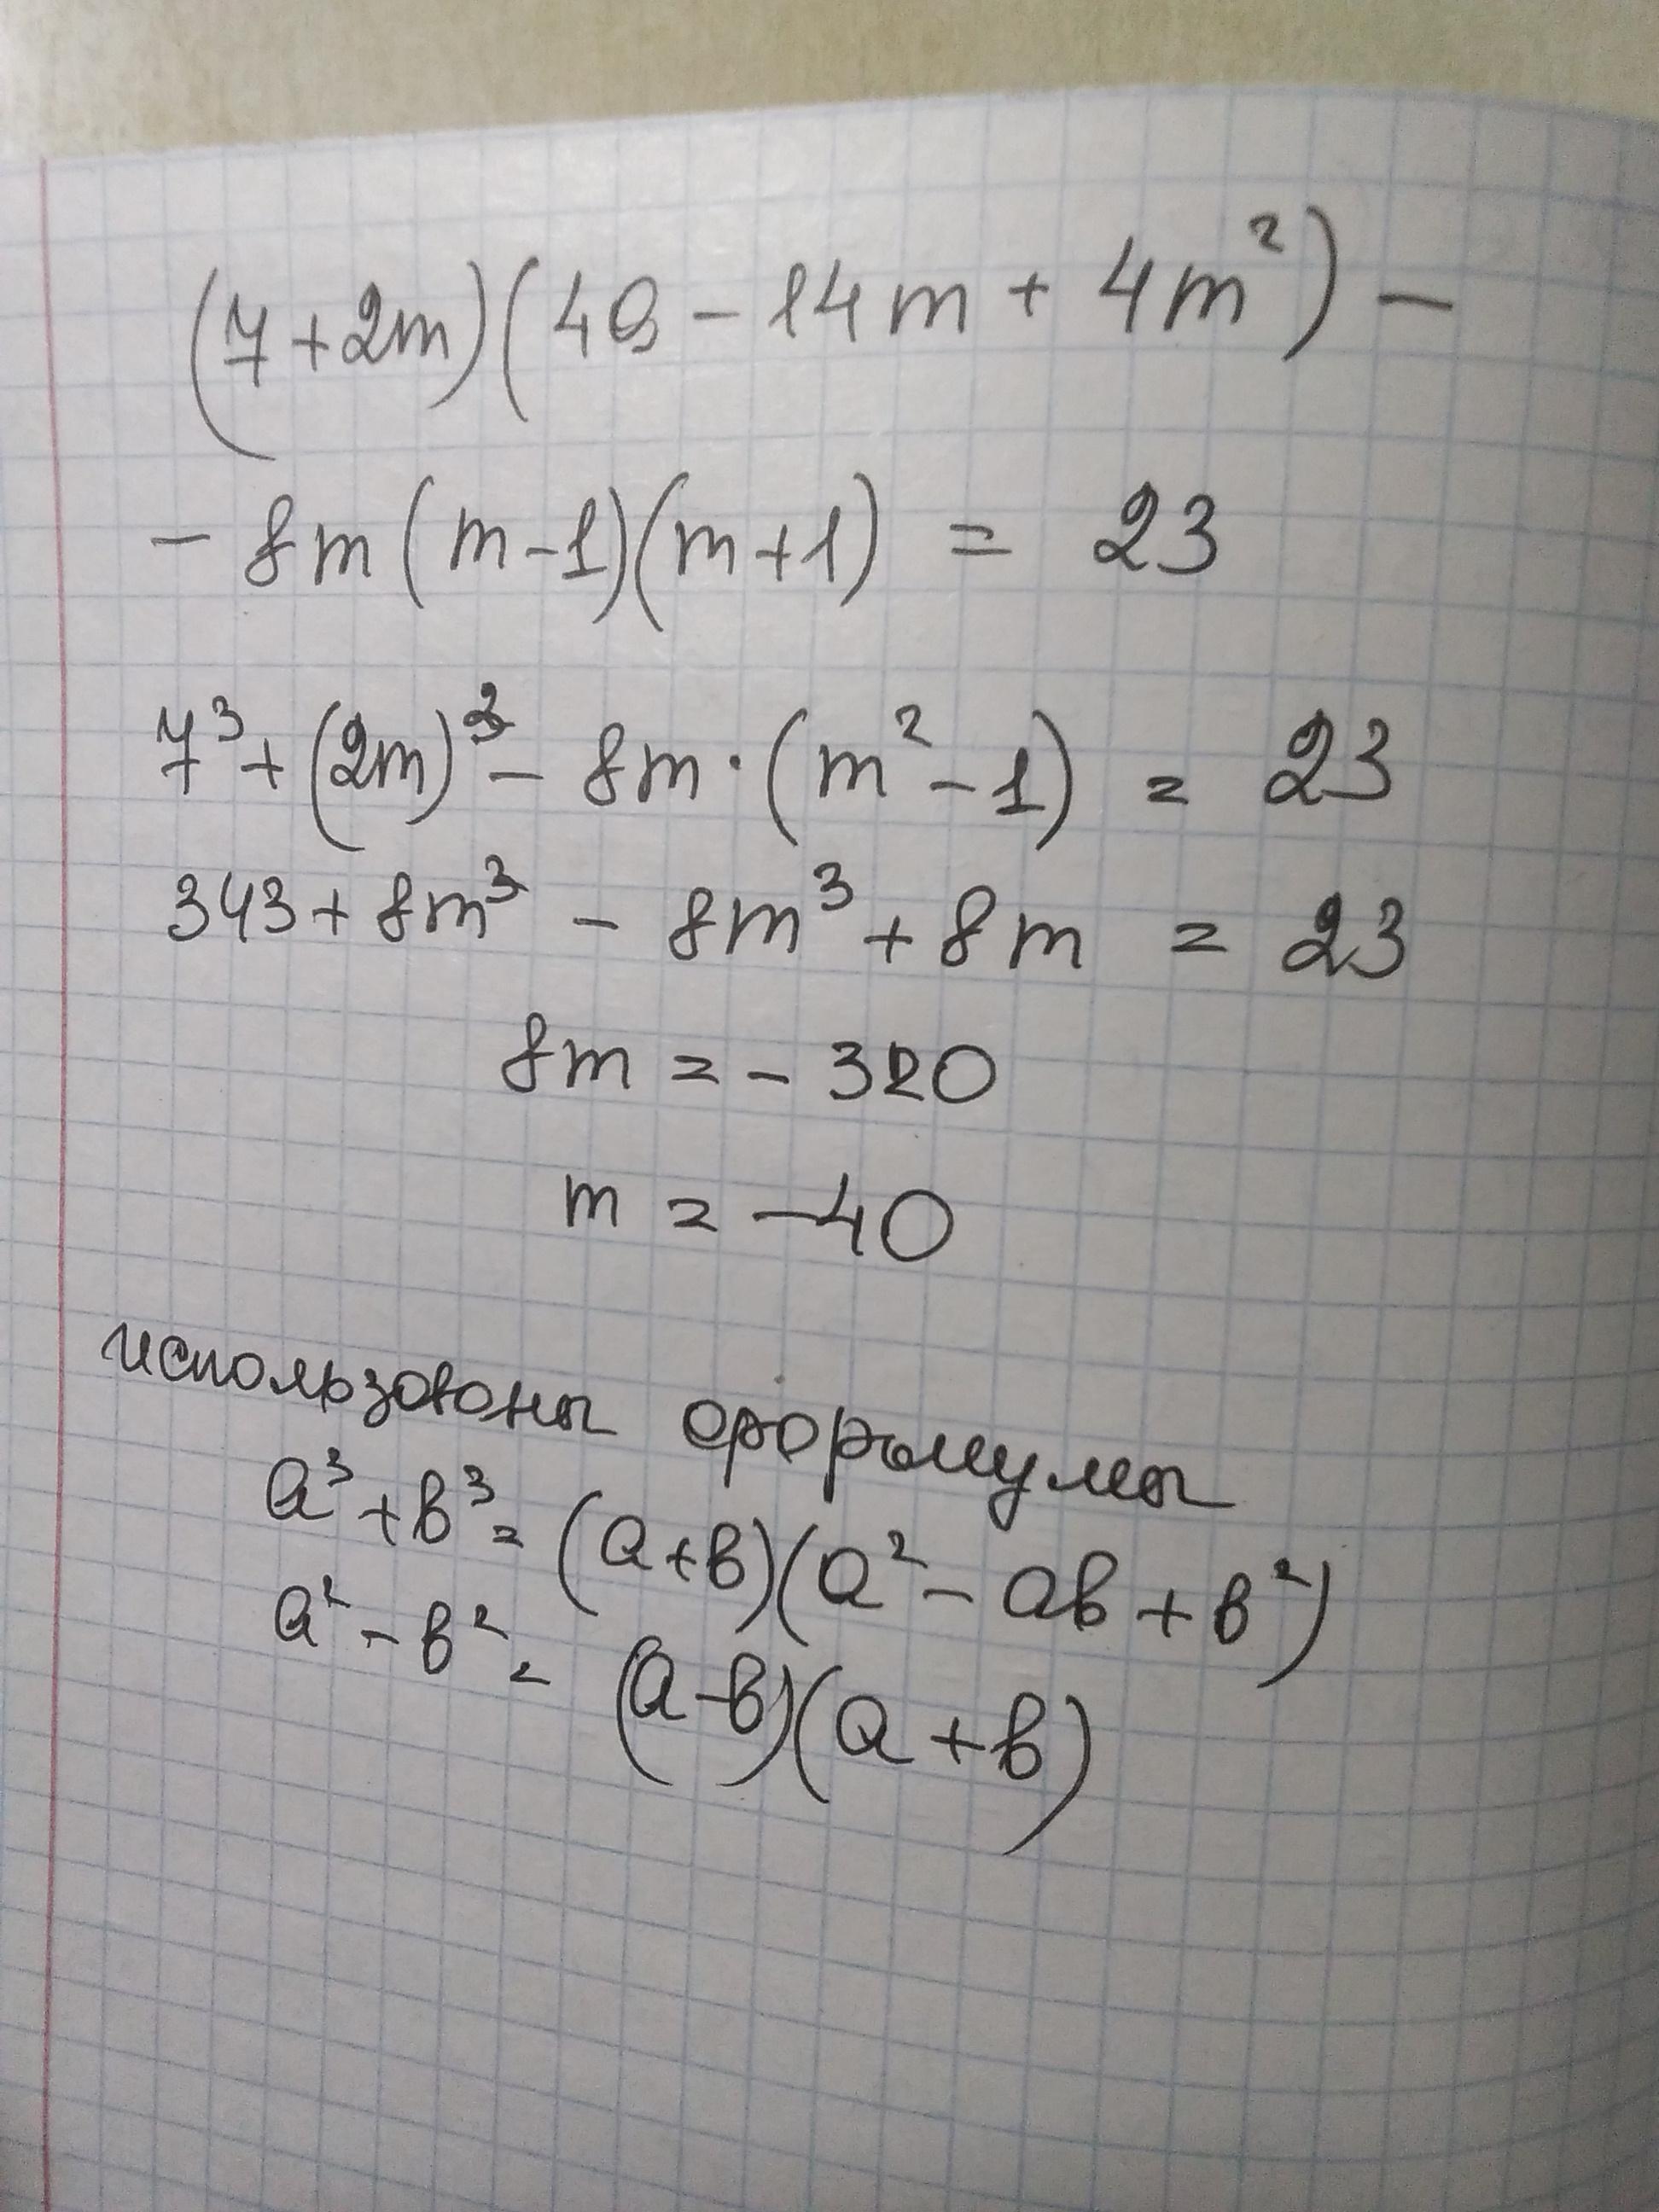 (7+2m)(49-14m+4m²)-
-8m(m-1)(m+1) = 23
7³+(2m)³-8m·(m²-1) = 23
343+8m³-8m³+8m = 23
8m=-320
m=-40
использованы формулы
a³+в³=(a+в)(a²-aв+в²)
a²-в²=(a-в)(a+в)